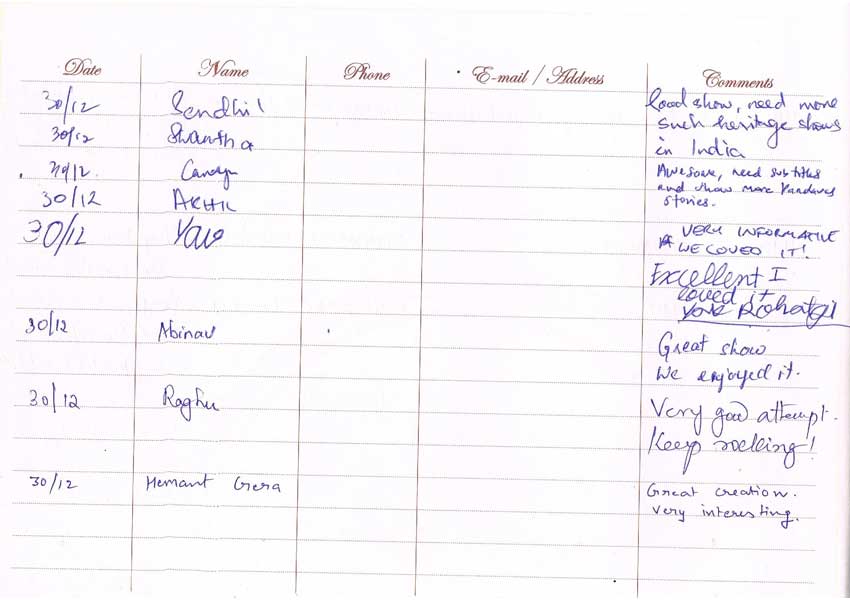 Date Name Phone E-mail / Address Comments
30/12 Sendhil Good show, need more
such heritage shows
30/12 Shantha
in India
30/12. Awesome, need subtitles
and show more Pandavas
stories.
30/12 AKHIL
30/12 VERY INFORMATIVE
WE LOVED IT!
Excellent I
loved it
Rohatgi
30/12 Abinav Great show
We enjoyed it.
30/12 Raghu Very good attempt.
Keep rocking!
30/12 Hemant Gera Great creation.
Very interesting.